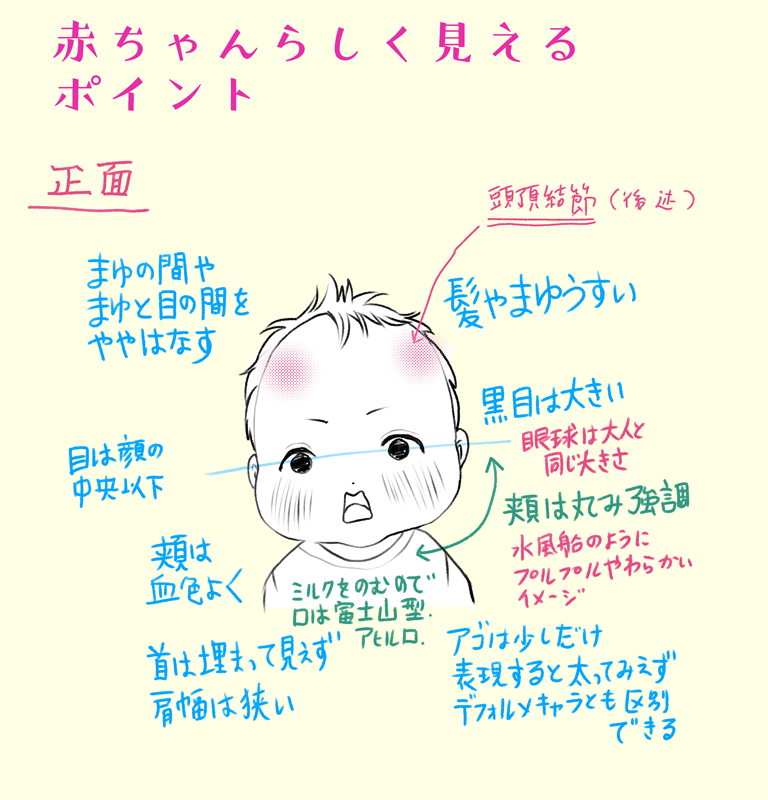 赤ちゃんらしく見える
ポイント
正面
頭頂結節(後述)
まゆの間や
まゆと目の間を
ややはなす
髪やまゆうすい
黒目は大きい
眼球は大人と
同じ大きさ
目は顔の
中央以下
頬は丸み強調
水風船のように
プルプルやわらかい
イメージ
頬は
血色よく
ミルクをのむので
口は富士山型.
アヒル口.
首は埋まって見えず
肩幅は狭い
アゴは少しだけ
表現すると太ってみえず
デフォルメキャラとも区別
できる